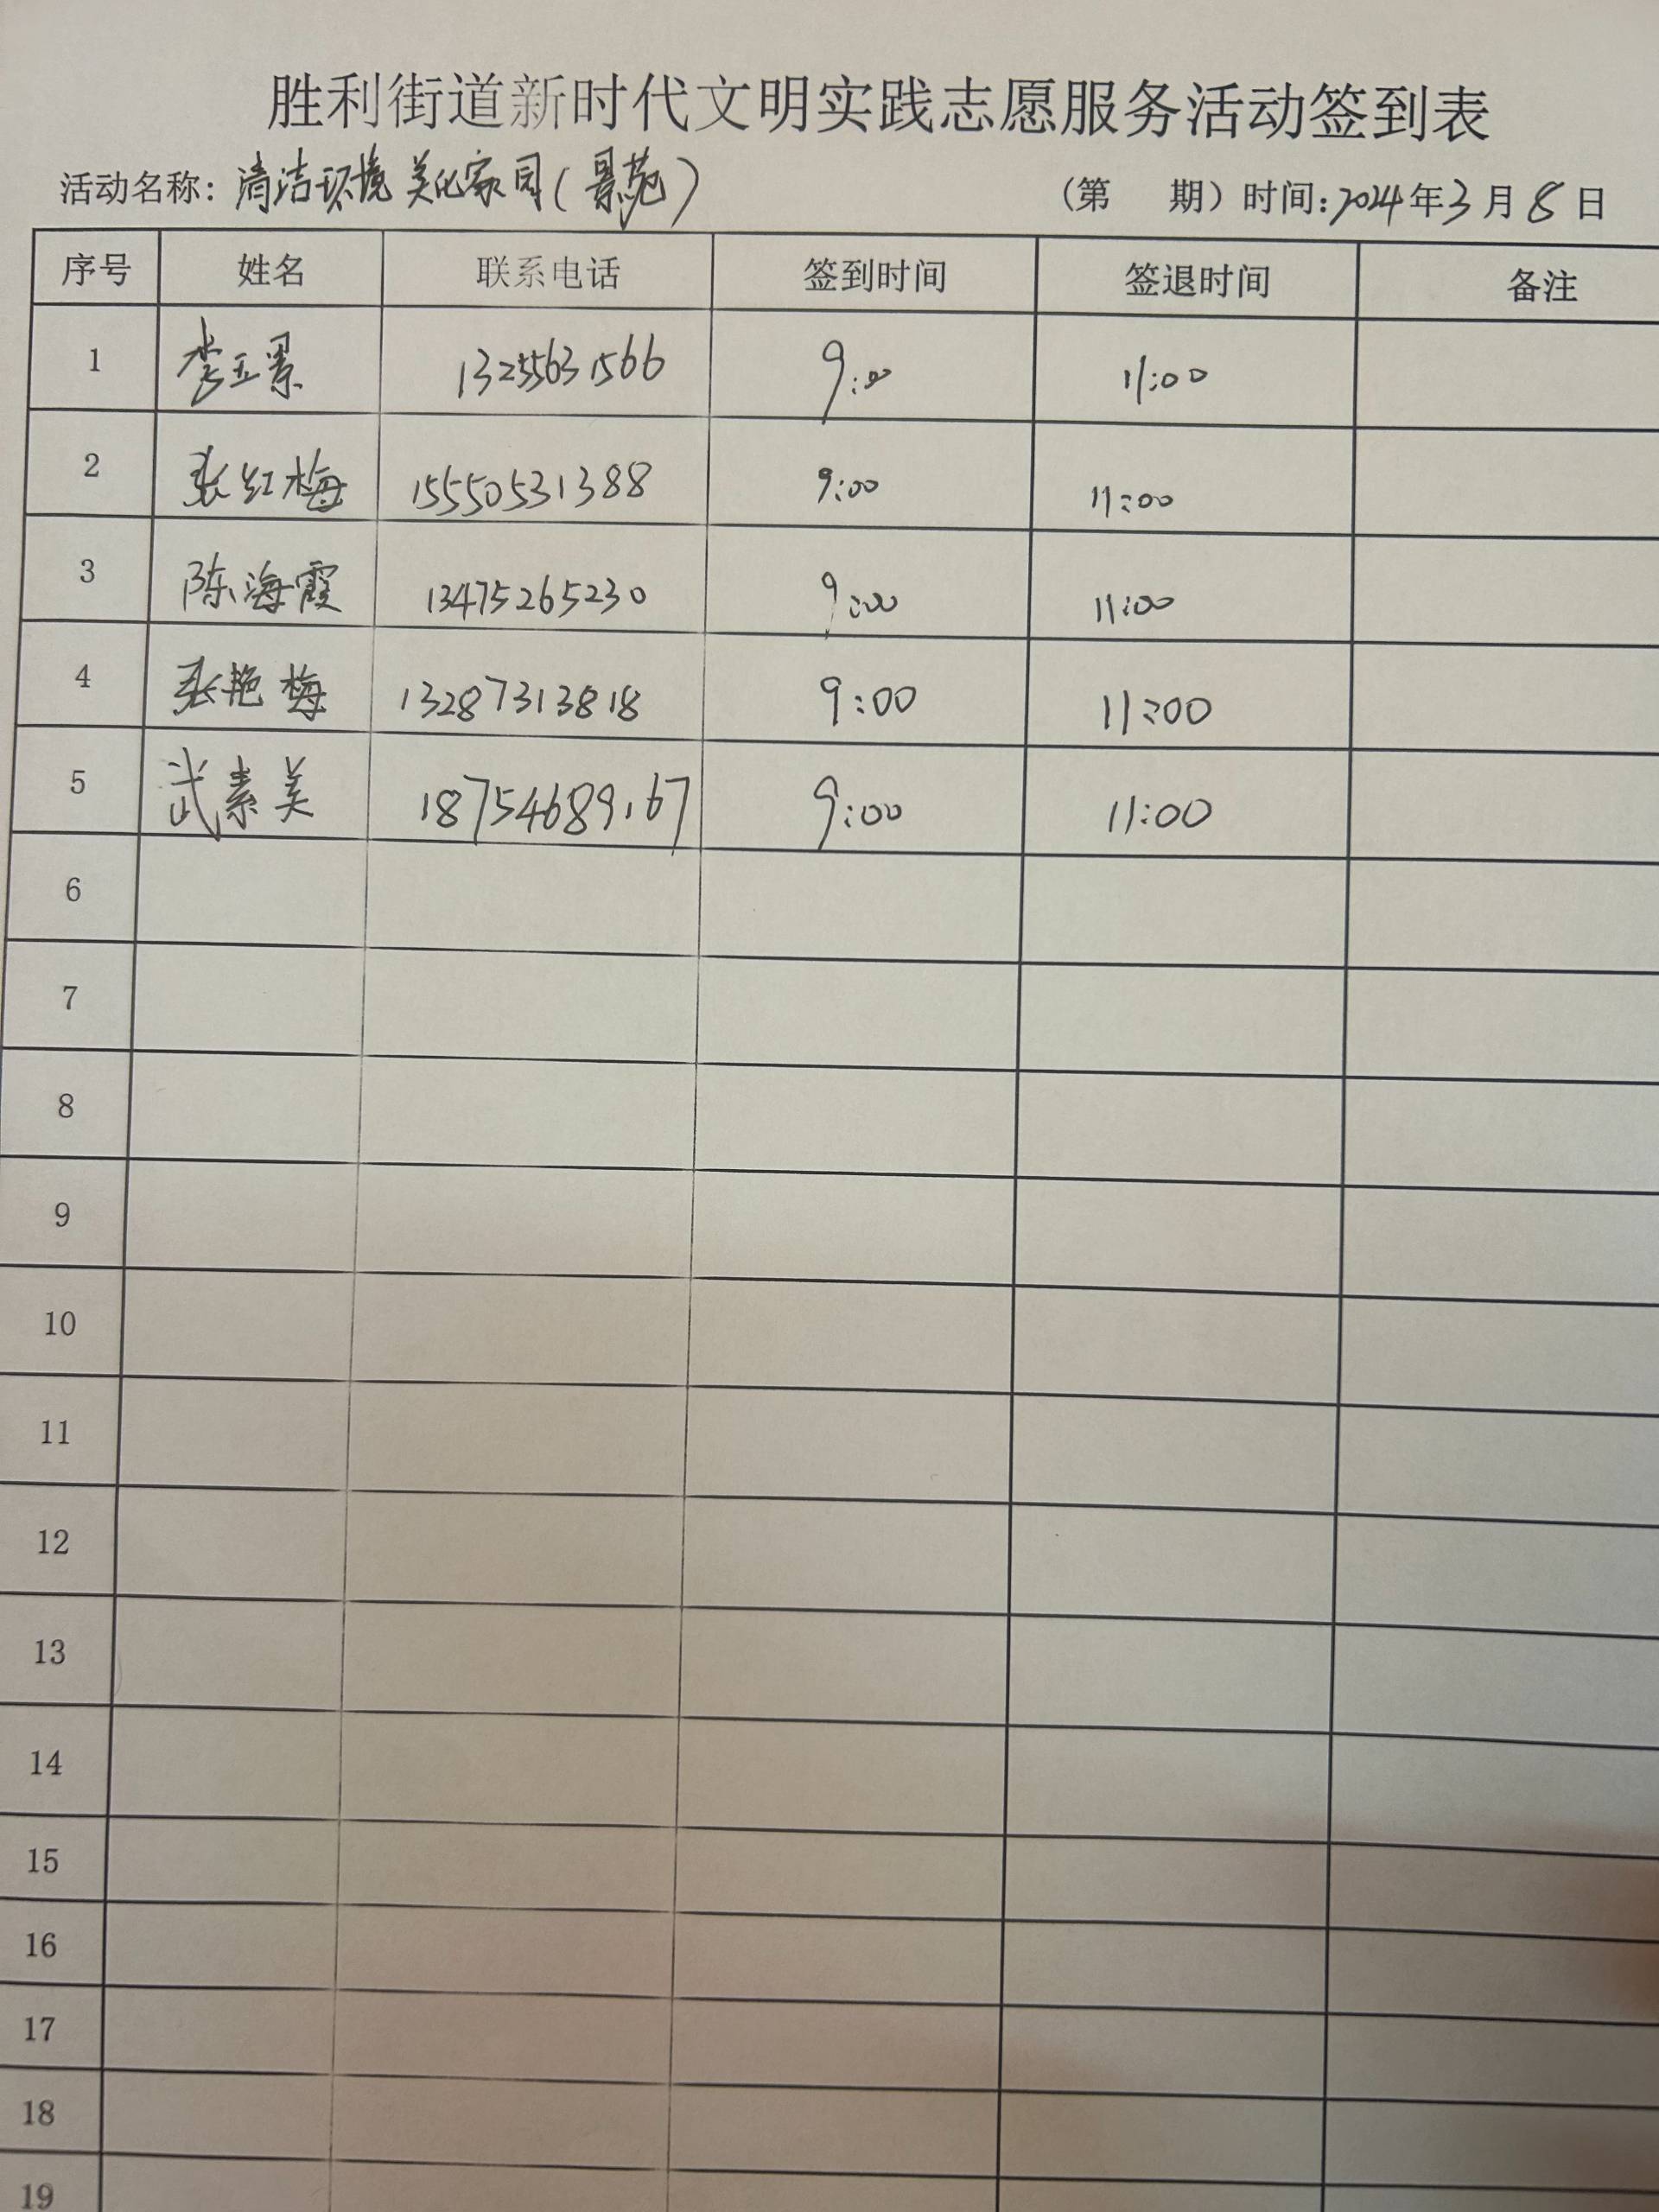 胜利街道新时代文明实践志愿服务活动签到表
活动名称：清洁环境 美化家园（景苑） （第 期）时间：2024年3月8日
序号 姓名 联系电话 签到时间 签退时间 备注
1 李玉景 13255631566 9:00 11:00
2 张红梅 15550531388 9:00 11:00
3 陈海霞 13475265230 9:00 11:00
4 张艳梅 13287313818 9:00 11:00
5 武素美 18754689167 9:00 11:00
6
7
8
9
10
11
12
13
14
15
16
17
18
19